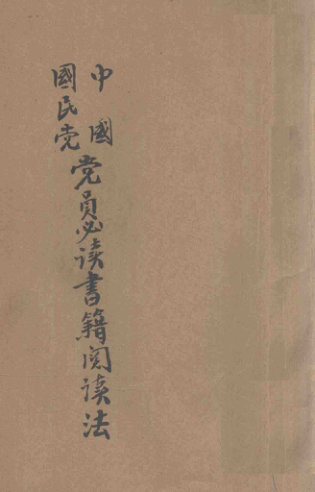 中國
國民党
党员必读書籍阅读法